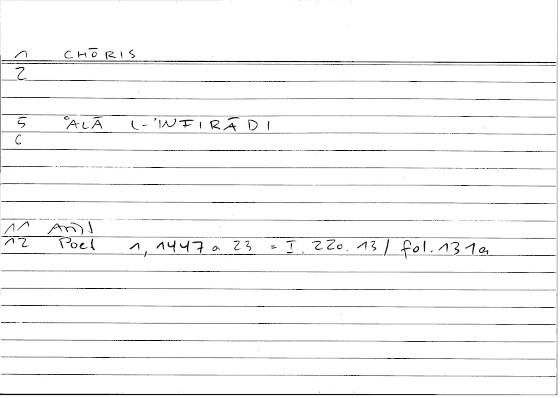 1 CHŌRIS
2
5 ʿALĀ L-ʼINFIRĀDI
6
11 Arist
12 Poet 1, 1447 a 23 = I, 220.13 / fol. 131a